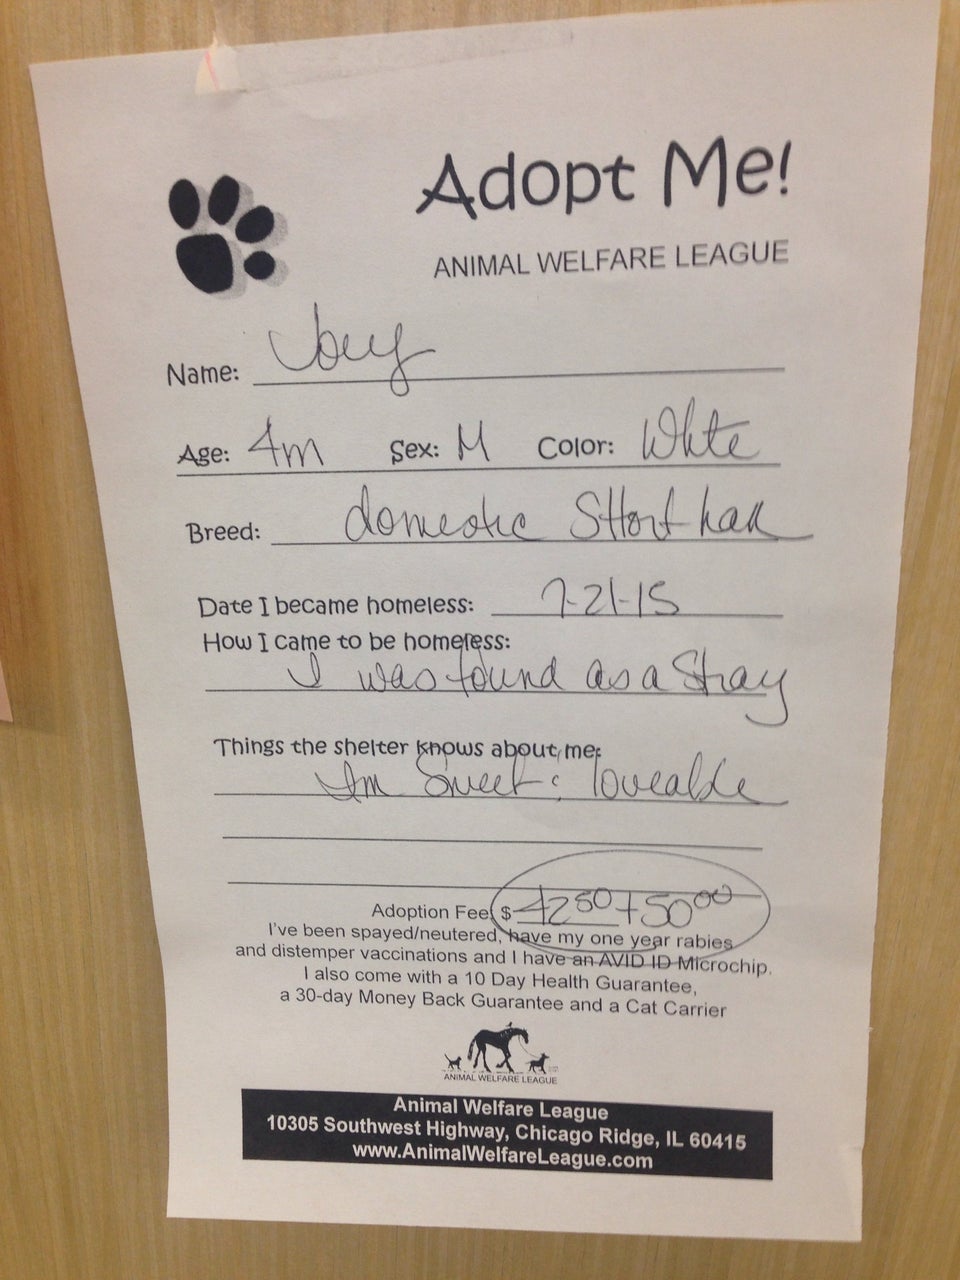 Adopt Me!
ANIMAL WELFARE LEAGUE
Name: Joey
Age: 4m Sex: M Color: White
Breed: domestic SHort hair
Date I became homeless: 7-21-15
How I came to be homeless:
I was found as a Stray
Things the shelter knows about me:
Im Sweet & loveable
Adoption Fee: $ 42.50 + 50.00
I've been spayed/neutered, have my one year rabies
and distemper vaccinations and I have an AVID ID Microchip.
I also come with a 10 Day Health Guarantee,
a 30-day Money Back Guarantee and a Cat Carrier
ANIMAL WELFARE LEAGUE
Animal Welfare League
10305 Southwest Highway, Chicago Ridge, IL 60415
www.AnimalWelfareLeague.com